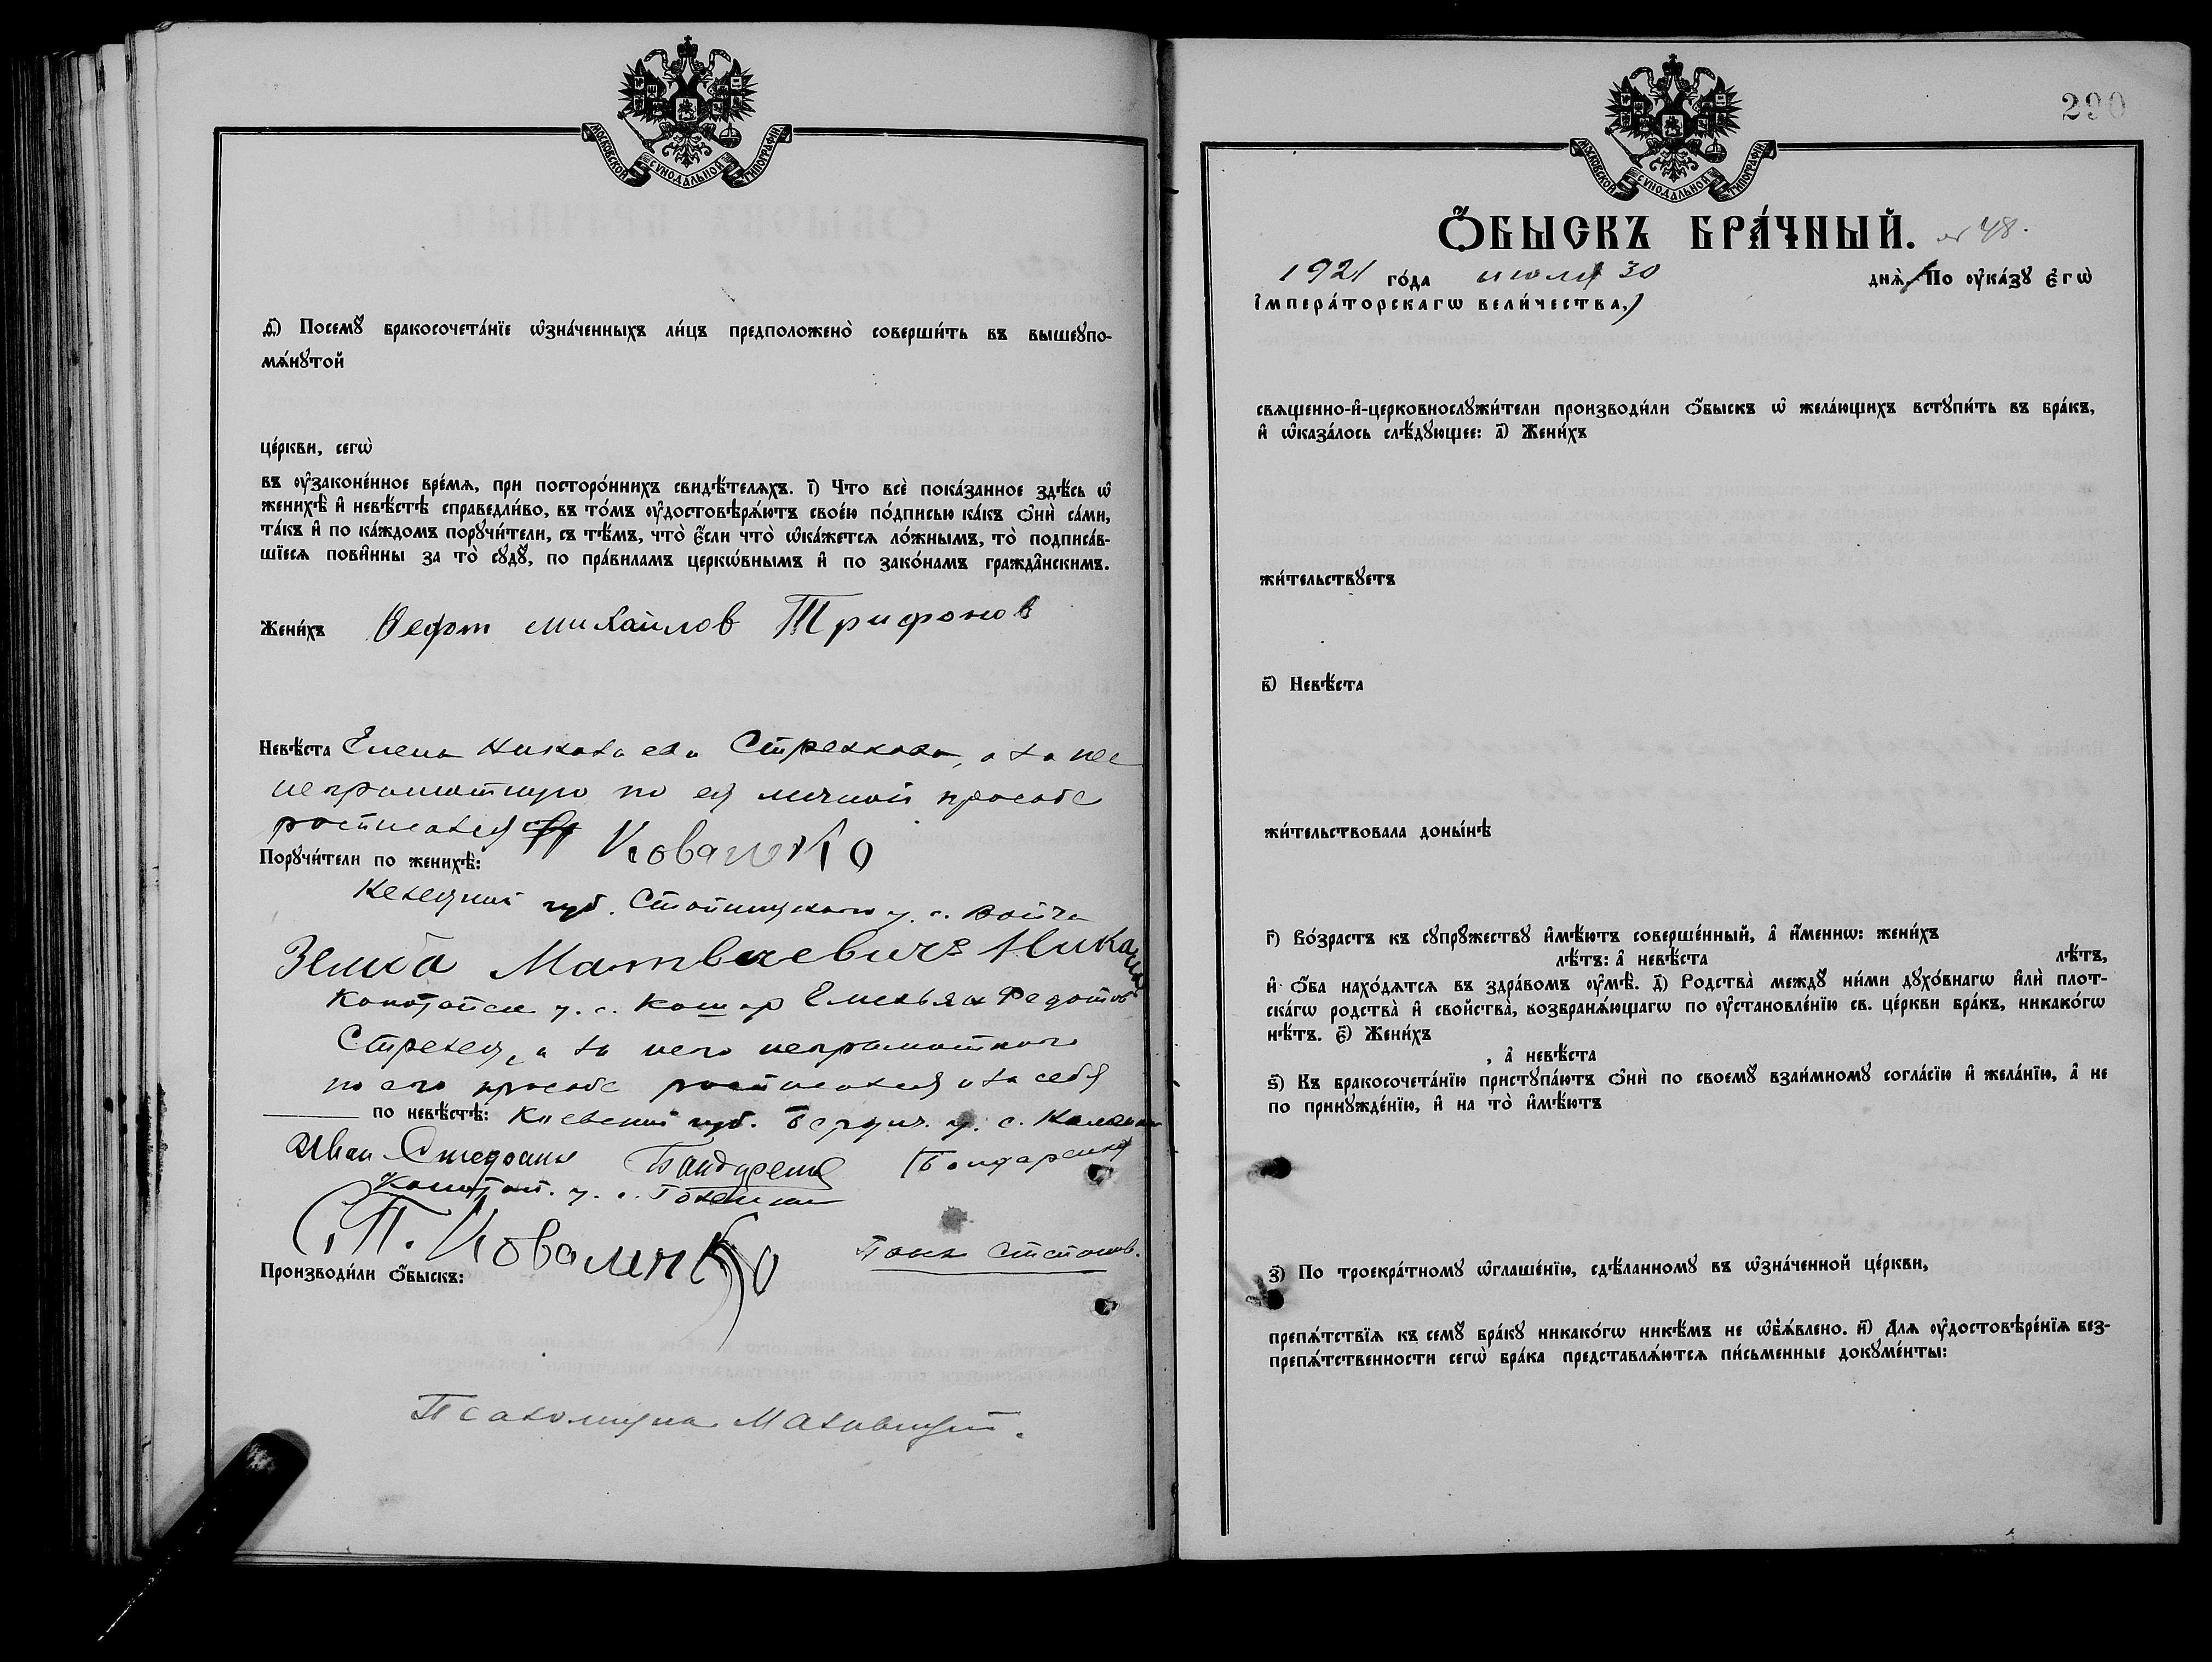 МОСКОВСКОЙ СѴНОДАЛЬНОЙ ТИПОГРАФІИ
д҃) Посемꙋ̀ бракосочета́нїе ѡ҆зна́ченныхъ ли́цъ предположено̀ соверши́ть въ вышеꙋпо-
мѧ́нꙋтой
це́ркви, сегѡ̀
въ оу҆законе́нное вре́мѧ, при посторо́ннихъ свидѣ́телѧхъ. і҃) Что всѐ пока́занное здѣ́сь ѡ҆
женихѣ̀ и҆ невѣ́стѣ справедли́во, въ то́мъ оу҆достовѣрѧ́ютъ свое́ю по́дписью ка́къ ѻ҆нѝ са́ми,
та́къ и҆ по ка́ждомъ порꙋчи́тели, съ тѣ́мъ, что̀ є҆́сли что̀ ѡ҆ка́жетсѧ ло́жнымъ, то̀ подписа́в-
шїесѧ пови́нны за то̀ сꙋдꙋ̀, по пра́виламъ церкѡ́внымъ и҆ по зако́намъ гражда̂нскимъ.
Жени́хъ михайлов Трифонов
Невѣ́ста Елена Николаева Стрелкова, а за нее
неграмотную по ея личной просьбе
росписался Коваленко
Порꙋчи́тели по женихѣ̀:
губ. у. с.
Матвеевичъ
у. с. Емельян Федотов
Стрелец, а за него неграмотного
по его просьбе росписался и за себя
по невѣ́стѣ: Киевской губ. Бердич. у. с.
Иван Бандуренко (Бондаренко)
у. с.
П. Коваленко
Производи́ли ѻ҆́быскъ:
МОСКОВСКОЙ СѴНОДАЛЬНОЙ ТИПОГРАФІИ
290
Ѻ҆́БЫСКЪ БРА́ЧНЫЙ. № 48.
1921 го́да июля 30 днѧ̀ По оу҆ка́зꙋ є҆гѡ̀
і҆мпера́торскагѡ вели́чества,
свѧщенно-и҆-церковнослꙋжи́тели производи́ли ѻ҆́быскъ ѡ҆ жела́ющихъ встꙋпи́ть въ бра́къ,
и҆ ѡ҆каза́лось слѣ́дꙋющее: а҃) Жени́хъ
жи́тельствꙋетъ
в҃) Невѣ́ста
жи́тельствовала доны́нѣ
г҃) Во́зрастъ къ сꙋпрꙋ́жествꙋ и҆мѣ́ютъ соверше́нный, а҆ и҆́меннѡ: жени́хъ
лѣ́тъ: а҆ невѣ́ста лѣ́тъ,
и҆ ѻ҆́ба нахо́дѧтсѧ въ здра́вомъ оу҆мѣ̀. д҃) Родства̀ междꙋ̀ ни́ми дꙋхо́внагѡ и҆лѝ плот-
ска́гѡ родства̀ и҆ сво́йства̀, возбранѧ́ющагѡ по оу҆становле́нїю св. це́ркви бра́къ, никако́гѡ
нѣ́тъ. є҃) Жени́хъ
, а҆ невѣ́ста
ѕ҃) Къ бракосочета́нїю пристꙋпа́ютъ ѻ҆нѝ по своемꙋ̀ взаи́мномꙋ согла́сїю и҆ жела́нїю, а҆ не
по принꙋжде́нїю, и҆ на то̀ и҆мѣ́ютъ
з҃) По троекра́тномꙋ ѡ҆глаше́нїю, сдѣ́ланномꙋ въ ѡ҆зна́ченной це́ркви,
препѧ́тствїѧ къ семꙋ̀ бра́кꙋ никако́гѡ никѣ́мъ не ѡ҆б̾ѧ́влено. и҃) Длѧ оу҆достовѣре́нїѧ без-
препѧ́тственности сегѡ̀ бра́ка представлѧ́ютсѧ пи́сьменные докꙋме́нты: